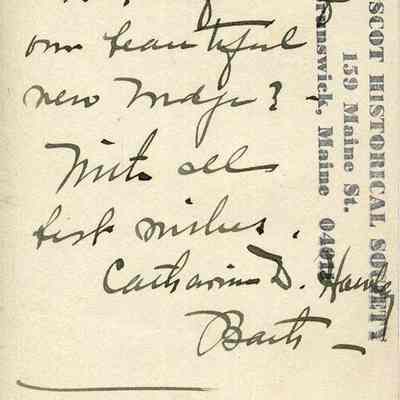 our beautiful
new bridge?
With all
best wishes.
Catharine D.
Bath
SCOT HISTORICAL SOCIETY
159 Maine St.
runswick, Maine 04011